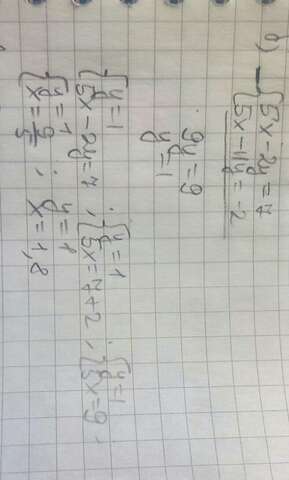 б) - { 5x - 2y = 7
5x - 11y = -2
9y = 9
y = 1
{ y = 1
5x - 2y = 7 , { y = 1
5x = 7 + 2 , { y = 1
5x = 9 .
{ y = 1
x = 9/5 ; y = 1
x = 1,8